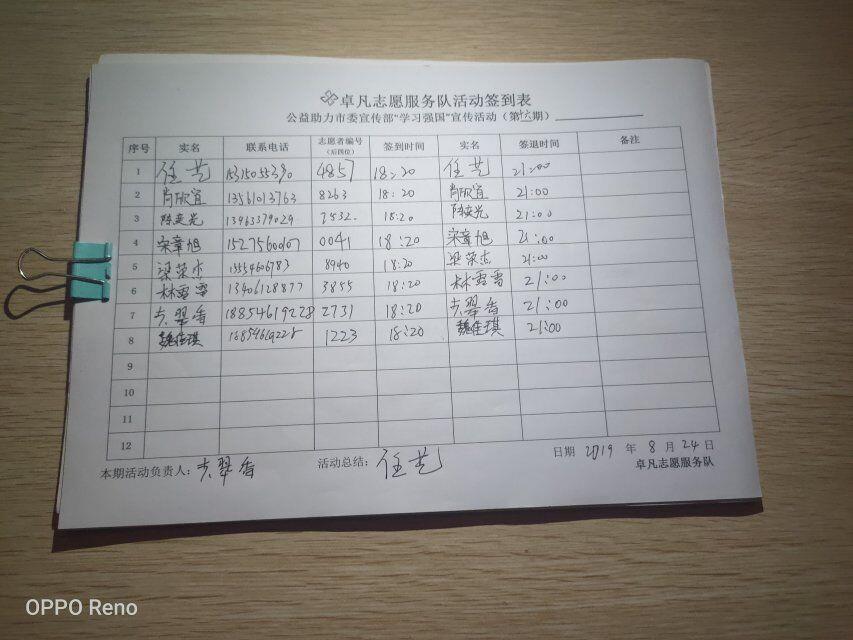 卓凡志愿服务队活动签到表
公益助力市委宣传部“学习强国”宣传活动（第十六期）
序号 实名 联系电话 志愿者编号（后四位） 签到时间 实名 签退时间 备注
1 任芝 4857 18:20 任芝 21:00
2 肖欣宜 13561013763 8263 18:20 肖欣宜 21:00
3 陈奕光 13963379029 7532 18:20 陈奕光 21:00
4 宋章旭 15275600107 0041 18:20 宋章旭 21:00
5 梁荣杰 15554606783 8940 18:20 梁荣杰 21:00
6 林雪雪 13406128877 3855 18:20 林雪雪 21:00
7 翠香 18854619228 2731 18:20 翠香 21:00
8 魏佳琪 1223 18:20 魏佳琪 21:00
9
10
11
12
本期活动负责人：翠香 活动总结：任芝 日期 2019 年 8 月 24 日
卓凡志愿服务队
OPPO Reno